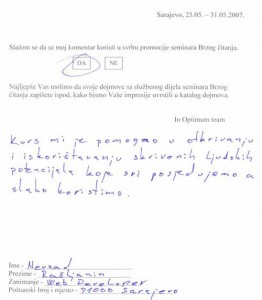 Sarajevo, 25.05. – 31.05.2007.
Slažem se da se moj komentar koristi u svrhu promocije seminara Brzog čitanja.
DA NE
Najljepše Vas molimo da svoje dojmove sa službenog dijela seminara Brzog
čitanja zapišete ispod, kako bismo Vaše impresije uvrstili u katalog dojmova.
In Optimum team
Kurs mi je pomogao u otkrivanju
i iskorištavanju skrivenih ljudskih
potencijala koje svi posjedujemo a
slabo koristimo.
Ime - Nevzad
Prezime - Rašljanin
Zanimanje - Web Developer
Poštanski broj i mjesto - 71000 Sarajevo